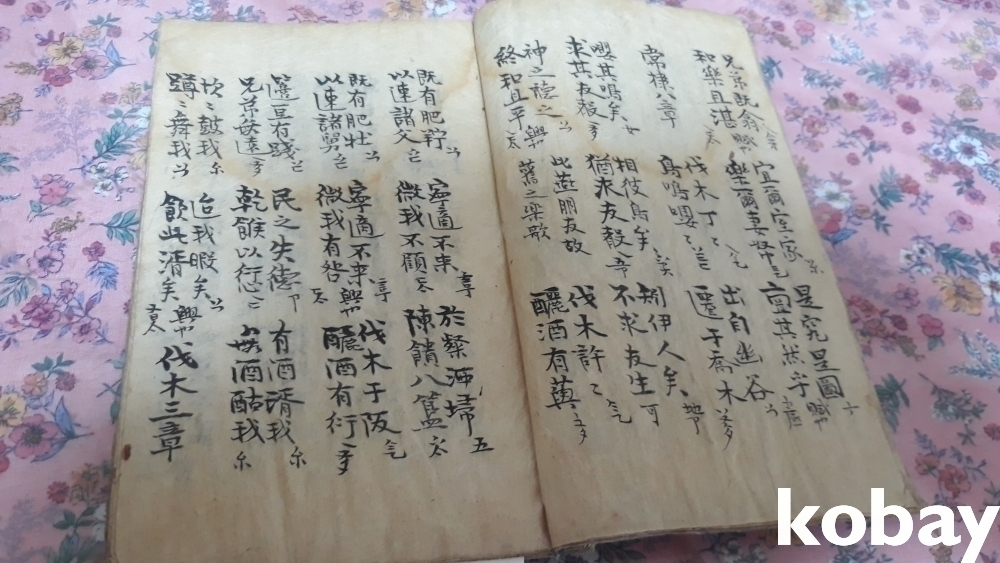 兄弟既翕
和樂且湛
宜爾室家
樂爾妻帑
是究是圖
亶其然乎 賦也
常棣八章
伐木丁〻
鳥鳴嚶〻
出自幽谷
遷于喬木
嚶其鳴矣
求其友聲
相彼鳥矣
猶求友聲
矧伊人矣
不求友生
神之聽之 興也
終和且平
此燕朋友故
舊之樂歌
伐木許〻
釃酒有藇
既有肥羜
以速諸父
寧適不來
微我不顧
於粲洒埽
陳饋八簋
既有肥牡
以速諸舅
寧適不來 興也
微我有咎
伐木于阪
釃酒有衍
籩豆有踐
兄弟無遠
民之失德
乾餱以愆
有酒湑我
無酒酤我
坎〻鼓我
蹲〻舞我
迨我暇矣
飲此湑矣 興也
伐木三章
kobay